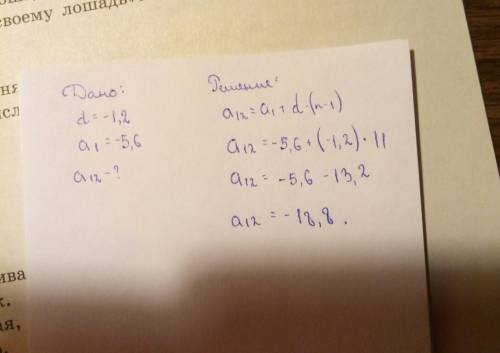 своему лошадь
Дано:
d = -1,2
a1 = -5,6
a12 - ?
Решение:
a12 = a1 + d·(n-1)
a12 = -5,6 + (-1,2)·11
a12 = -5,6 - 13,2
a12 = -18,8.